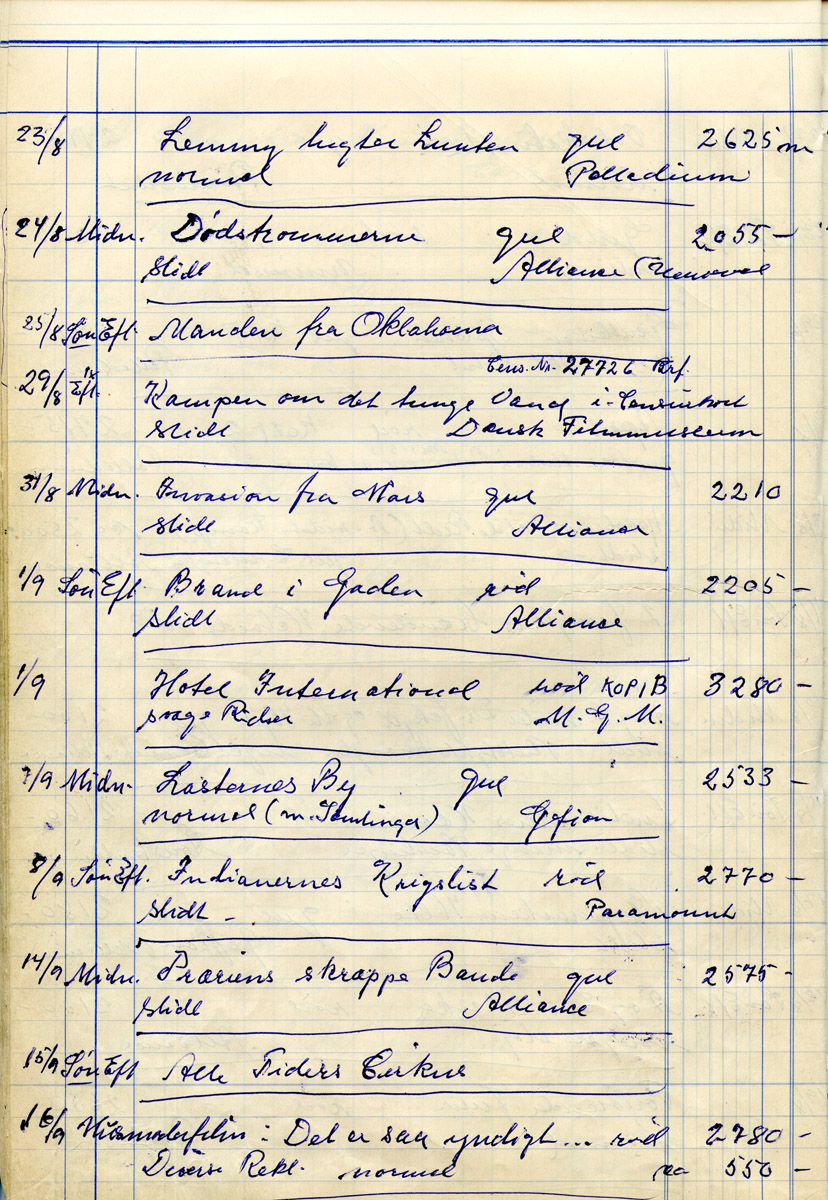 23/8 Lemmy lugter Lunten gul 2625 m
normal Palladium
24/8 Midn. Dødskommerne gul 2055 -
Slidt Alliance (
25/8 Søn Eft. Manden fra Oklahoma
Cens. Nr. 27726 Brf.
29/8 Eft. Kampen om det tunge Vand i Censurkort
Slidt Dansk Filmmuseum
31/8 Midn. Invasion fra Mars gul 2210
Slidt Alliance
1/9 Søn Eft Brand i Gaden rød 2205 -
Slidt Alliance
1/9 Hotel International rød KOPI B 3280 -
svage Ridser M. G. M.
7/9 Midn. Lasternes By gul 2533 -
normal (m. Samlinger) Gefion
8/9 Søn Eft. Indianernes Krigslist rød 2770 -
Slidt - Paramount
14/9 Midn. Præriens skrappe Bande gul 2575 -
Slidt Alliance
15/9 Søn Eft Alle Tiders Cirkus
16/9 Husmoderfilm : Det er saa yndigt... rød 2780 -
Diverse Rekl. normal ca 550 -